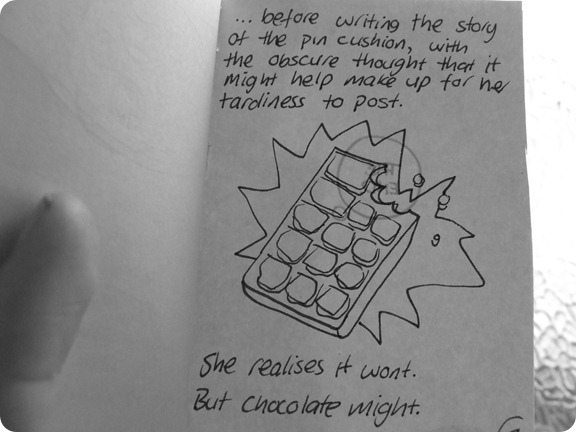 ... before writing the story
of the pin cushion, with
the obscure thought that it
might help make up for her
tardiness to post.
She realises it wont.
But chocolate might.